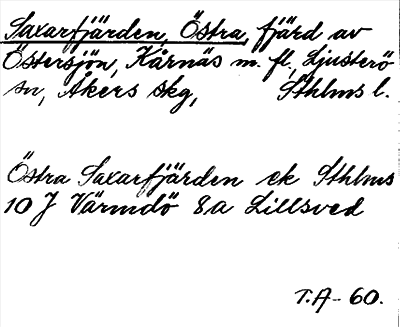 Saxarfjärden, Östra, fjärd av
Östersjön, Kårnäs m. fl., Ljusterö
sn, Åkers skg, Sthlms l.
Östra Saxarfjärden ek Sthlms
10 J Värmdö 8a Lillsved
T.A-60.